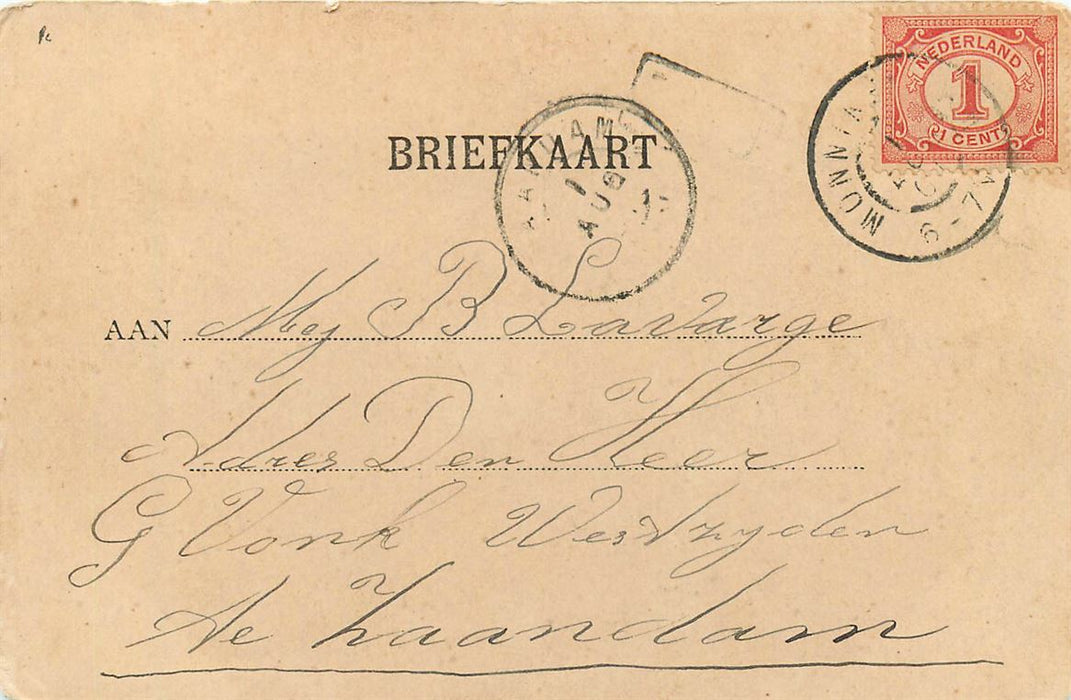 NEDERLAND
1
1 CENT
BRIEFKAART
1
AUG
6-7
AAN Mej B Lavarge
Adres Den Heer
G Vonk Westzyden
Te Zaandam